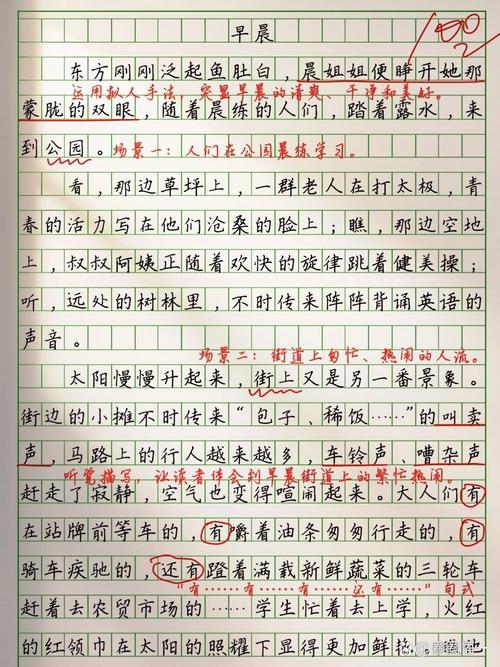 早晨
100
东方刚刚泛起鱼肚白，晨姐姐便睁开她那
运用拟人手法，突显早晨的清爽、干净和美好。
蒙胧的双眼，随着晨练的人们，踏着露水，来
到公园。
场景一：人们在公园晨练学习。
看，那边草坪上，一群老人在打太极，青
春的活力写在他们沧桑的脸上；瞧，那边空地
上，叔叔阿姨正随着欢快的旋律跳着健美操；
听，远处的树林里，不时传来阵阵背诵英语的
声音。
场景二：街道上匆忙、热闹的人流。
太阳慢慢升起来，街上又是另一番景象。
街边的小摊不时传来“包子、稀饭……”的叫卖
声，马路上的行人越来越多，车铃声、嘈杂声
听觉描写，让读者体会到早晨街道上的繁忙热闹。
赶走了寂静，空气也变得喧闹起来。大人们有
在站牌前等车的，有嚼着油条匆匆行走的，有
骑车疾驰的，还有蹬着满载新鲜蔬菜的三轮车
“有……有……有……还有……”句式
赶着去农贸市场的……学生忙着去上学，火红
的红领巾在太阳的照耀下显得更加鲜艳。